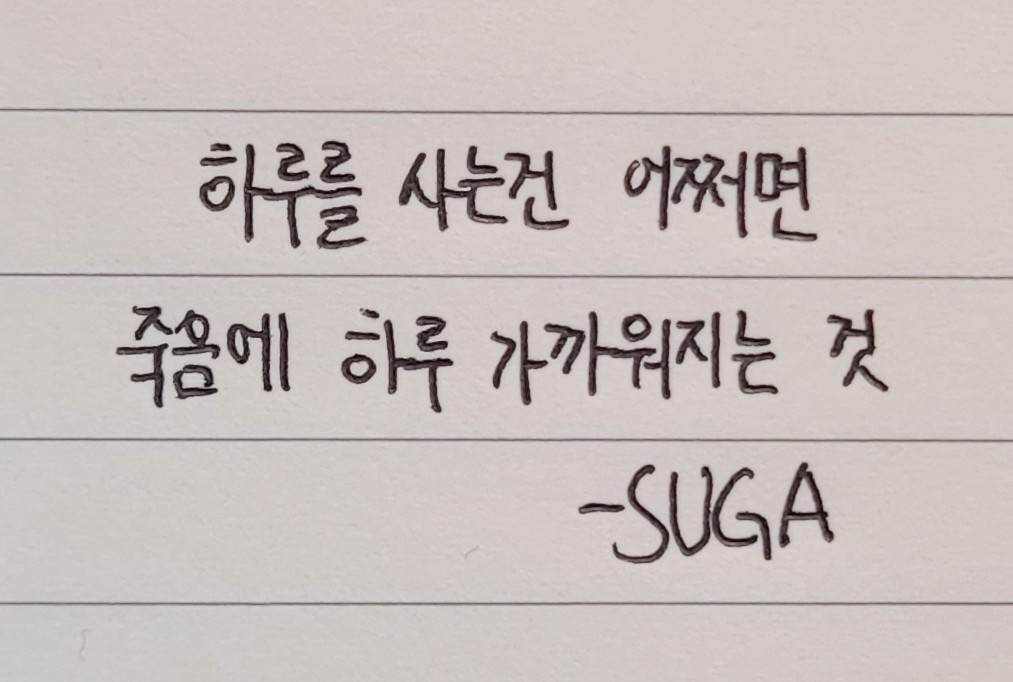 하루를 사는건 어쩌면
죽음에 하루 가까워지는 것
-SUGA